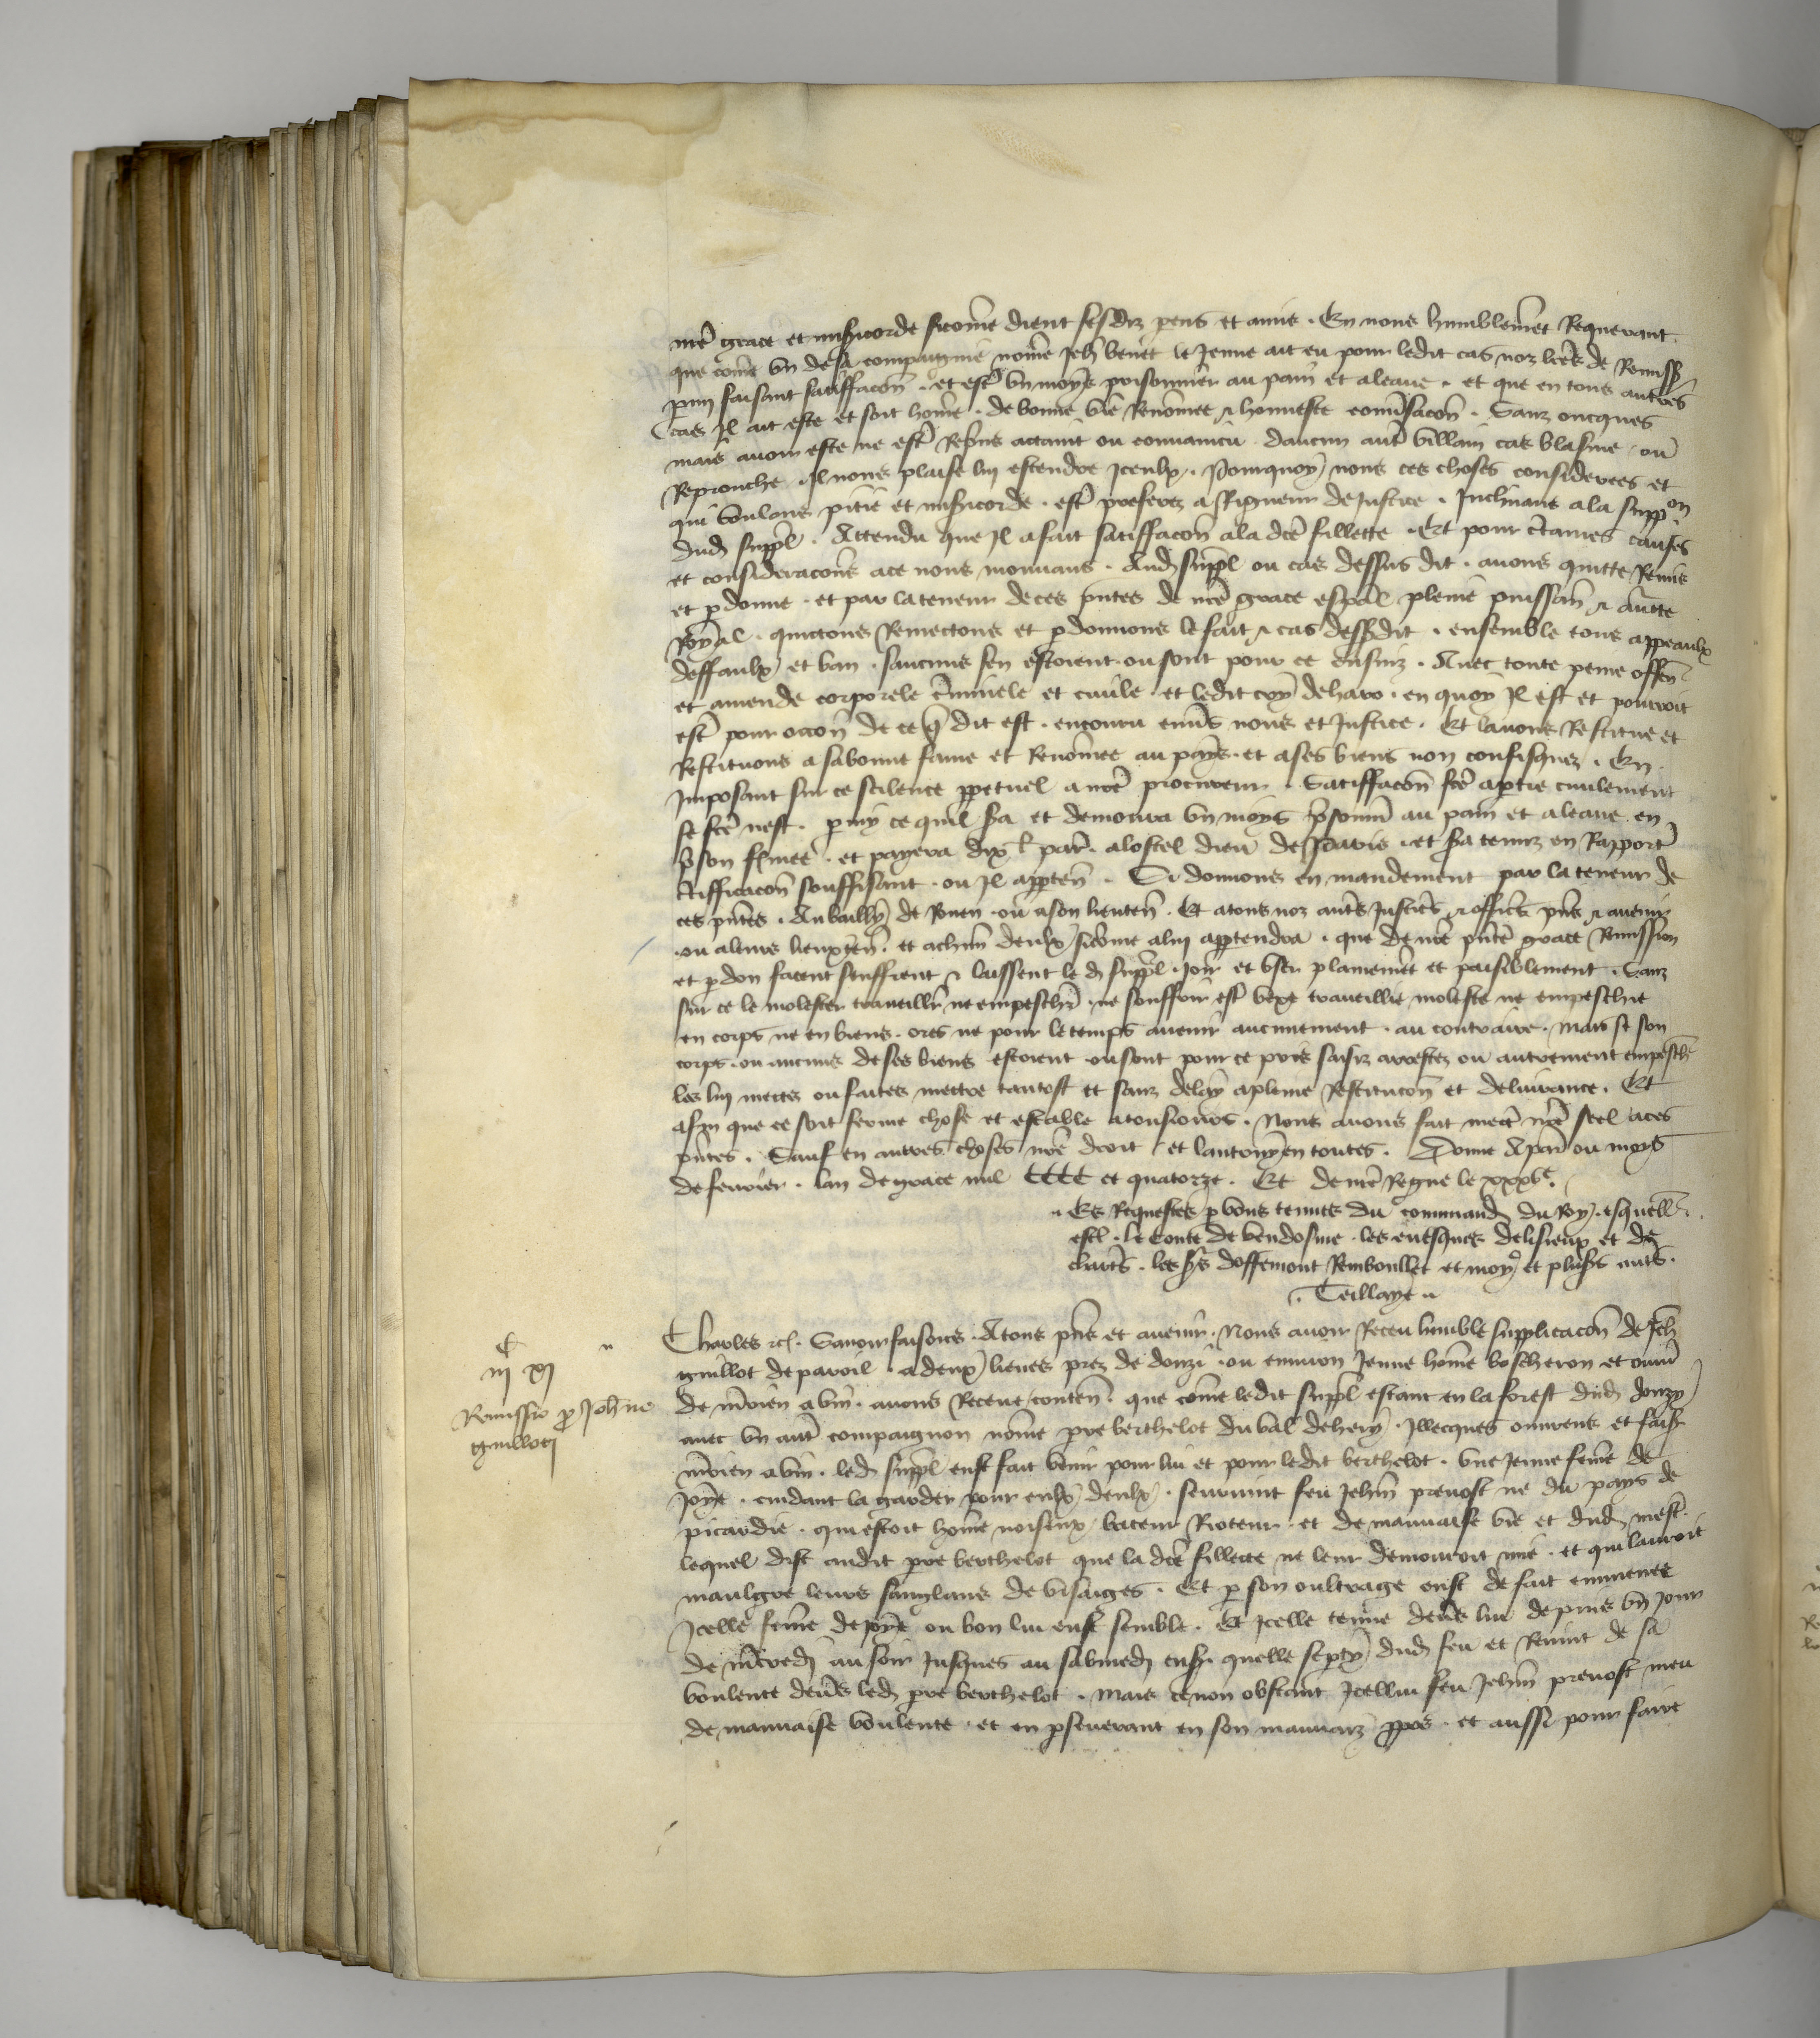 nr̃e grace et mis̃icorde sicom̃e dient sesdiz pens et amis . En nous humblem̃et Requerant
que com̃e vn de sa compaignie nom̃e Jeh̃ benet le Jenne ait eu pour ledit cas noz lr̃es de Remiss̃
p̱my faisant satiffacõn . et estr̃ vn moys prisonnier au pain et aleaue . et que en tous autres
cas Jl ait este et soit hom̃e . de bonne vie Renom̃ee ⁊ honneste conũsacõn . Sanz oncques
mais auoir este ne estr̃ Reprins actaint ou conuaincu . daucun autr̃ villain cas blasme . ou
Reprouche . Jl nous plaise luy estendre Jceulx . Pourquoy nous ces choses considerees et
qui voulons pitie et mis̃icorde . estr̃ preferez a Rigueur de Justice . Jnclinans a la supp̃on
dud suppl̃ . Attendu que Jl a fait satiffacõn ala dcẽ fillette . Et pour c̃taines causes
et consideracõns ace nous mouuans . Aud suppl̃ ou cas dessus dit . auons quitte Remis
et p̱donne . et par la teneur de ces p̃ntes de nr̃e grace esp̃al pleine puissan̄ ⁊ auc̃tte
Royal . quictons Remectons et p̱donnons le fait ⁊ cas dess̃dit . ensemble tous appeaulx
deffaulx et ban . saucuns sen estoient ou sont pour ce ensuiz . Auec toute peine offen̄
et amende corporele c̃minele et ciuile . et ledit cry de haro . en quoy Jl est et pourroit
estr̃ pour occõn de ce q̃ dit est . encouru enũs nous et Justice . Et lauons Restitue et
Restituons a sa bonne fame et Renom̃ee au pays . et a ses biens non confisquez . En
Jmposant sur ce scilence p̱petuel a nr̃e procureur . Satiffacõn fcẽ a ptie ciuilement
se fcẽ nest . p̱my ce quil s̃a et demourra vn moys p̃sonnĩ au pain et aleaue en
p̃son fermee . et payera dix l par̃ . alostel dieu de Paris . et s̃a tenuz en Rapporter
c̃tifficacõn souffisant . ou Jl appten̄ . Si donnons en mandement par la teneur de
ces p̃ntes . Au bailly de Rouen ou a son lieuten̄ . Et a tous noz autr̃s Justic̃s ⁊ offic̃s p̃ns ⁊ auenir
ou aleurs lieuxten̄ . et achũn deulx sicom̃e alui apptendra . que de nr̃e p̃nte grace Remission
et p̱don facent seuffrent ⁊ laissent le d suppl̃ . Joir et vser plainem̃et et paisiblement . Sanz
sur ce le molester trauaillr̃ ne empeschr̃ . ne souffrir estr̃ vexe trauaillie moleste ne empeschie
en corps ne en biens . ores ne pour le temps auenir aucunement . au contraire . Mais se son
corps . ou aucuns de ses biens estoient ou sont pour ce pris saisiz arrestez ou autrement empesch̃
les luy mectez ou faites mectre tantost et sanz delay a pleine Restitucõn et deliurance . Et
afin que ce soit ferme chose et estable atousiours . Nous auons fait mectr̃ nr̃e scel aces
p̃ntes . Sauf en autres choses nr̃e droit et lautruy en toutes . Donne A par̃ ou moys
de feurier . lan de grace mil CCCC et quatorze . Et de nr̃e Regne le xxxve .
Es Requestes p̱ vous tenues du command du Roy . esquell̃
estl̃ . le conte de vendosme . les euesques de lisieux et de
chartr̃s . les s̃rs doffemont Remboullet et moy et plus̃s autr̃s .
. Teillaye
Charles ⁊c̃ . Sauoir faisons . A tous p̃ns et auenir . Nous auoir Receu humble supplicacõn de Jeh̃
guillot de paroil . a deux lieues prez de donzi . ou enuiron Jenne hom̃e boscheron et ouur̃
de mr̃ien a vin . auons Receue conten̄ . que com̃e ledit suppl̃ estant en la forest dud donzy
auec vn autr̃ compaignon nom̃e prẽ berthelot du val de hery . Jllecques ouurans et fais̃
mr̃ien a vin . led suppl̃ eust fait venir pour lui et pour ledit berthelot . vne Jenne fem̃e de
Joye . cuidant la garder pour eulx deulx . seuruint feu Jeh̃n preuost ne du pays de
picardie . qui estoit hom̃e noiseux bateur Rioteur . et de mauuaise vie et dud mest̃ .
lequel dist audit prẽ berthelot que la dcẽ fillette ne leur demourroit mie . et quil lauroit
maulgre leurs sanglans de visaiges . Et p̱ son oultrage eust de fait emmenee
Jcelle fem̃e de Joye ou bon lui eust semble . Et Jcelle tenue deũs lui depuis vn Jour
de mc̃redj au soir Jusques au sabmedj ens̃ quelle se p̱ty dud feu et Reuint de sa
voulente deũs led prẽ berthelot . Mais ce non obstant Jcellui feu Jeh̃n preuost meu
de mauuaise voulente . et en p̱seuerant en son mauuaiz p̱pos . et aussi pour faire
C
iij xj
Remissio p̱ Joh̃ne
guilloti